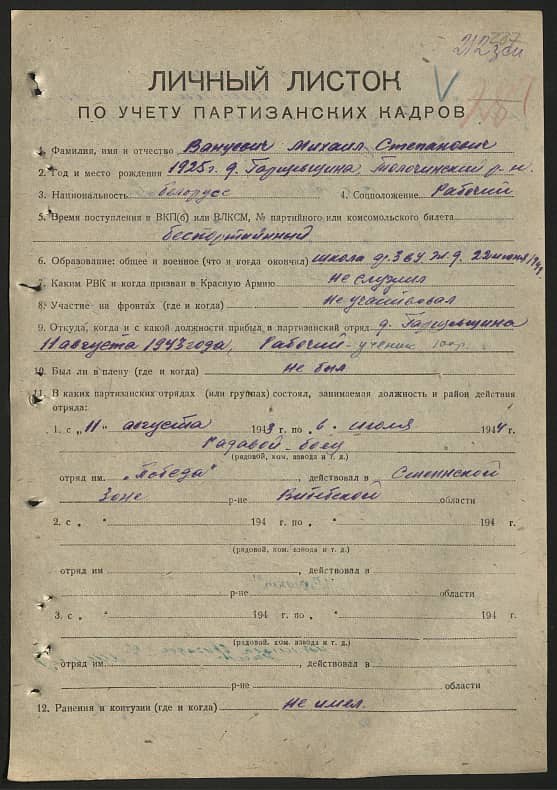 ЛИЧНЫЙ ЛИСТОК
ПО УЧЕТУ ПАРТИЗАНСКИХ КАДРОВ
1. Фамилия, имя и отчество Ванусвич Михаил Степанович
2. Год и место рождения 1925г. д. Гарщевщина Толочинский р-н.
3. Национальность белорусс 4. Соцположение Рабочий
5. Время поступления в ВКП(б) или ВЛКСМ, № партийного или комсомольского билета
беспортийный
6. Образование: общее и военное (что и когда окончил) школа ф.з.о 22 июня 1941
7. Каким РВК и когда призван в Красную Армию не служил
8. Участие на фронтах (где и когда) не участвовал
9. Откуда, когда и с какой должности прибыл в партизанский отряд д. Гарщевщина
11 августа 1943 года, Рабочий-ученик
10. Был ли в плену (где и когда) не был
11. В каких партизанских отрядах (или группах) состоял, занимаемая должность и район действия
отряда:
1. с „11" августа 1943 г. по „6. июля 1944 г.
Рядовой-боец
(рядовой, ком. взвода и т. д.)
отряд им. „Победа" , действовал в
Зоне р-не Витебской области
2. с „ " 194 г. по „ " 194 г.
(рядовой, ком. взвода и т. д.)
отряд им , действовал в
р-не области
3. с „ " 194 г. по „ " 194 г.
(рядовой, ком. взвода и т. д.)
отряд им. , действовал в
р-не области
12. Ранения и контузии (где и когда) не имел.